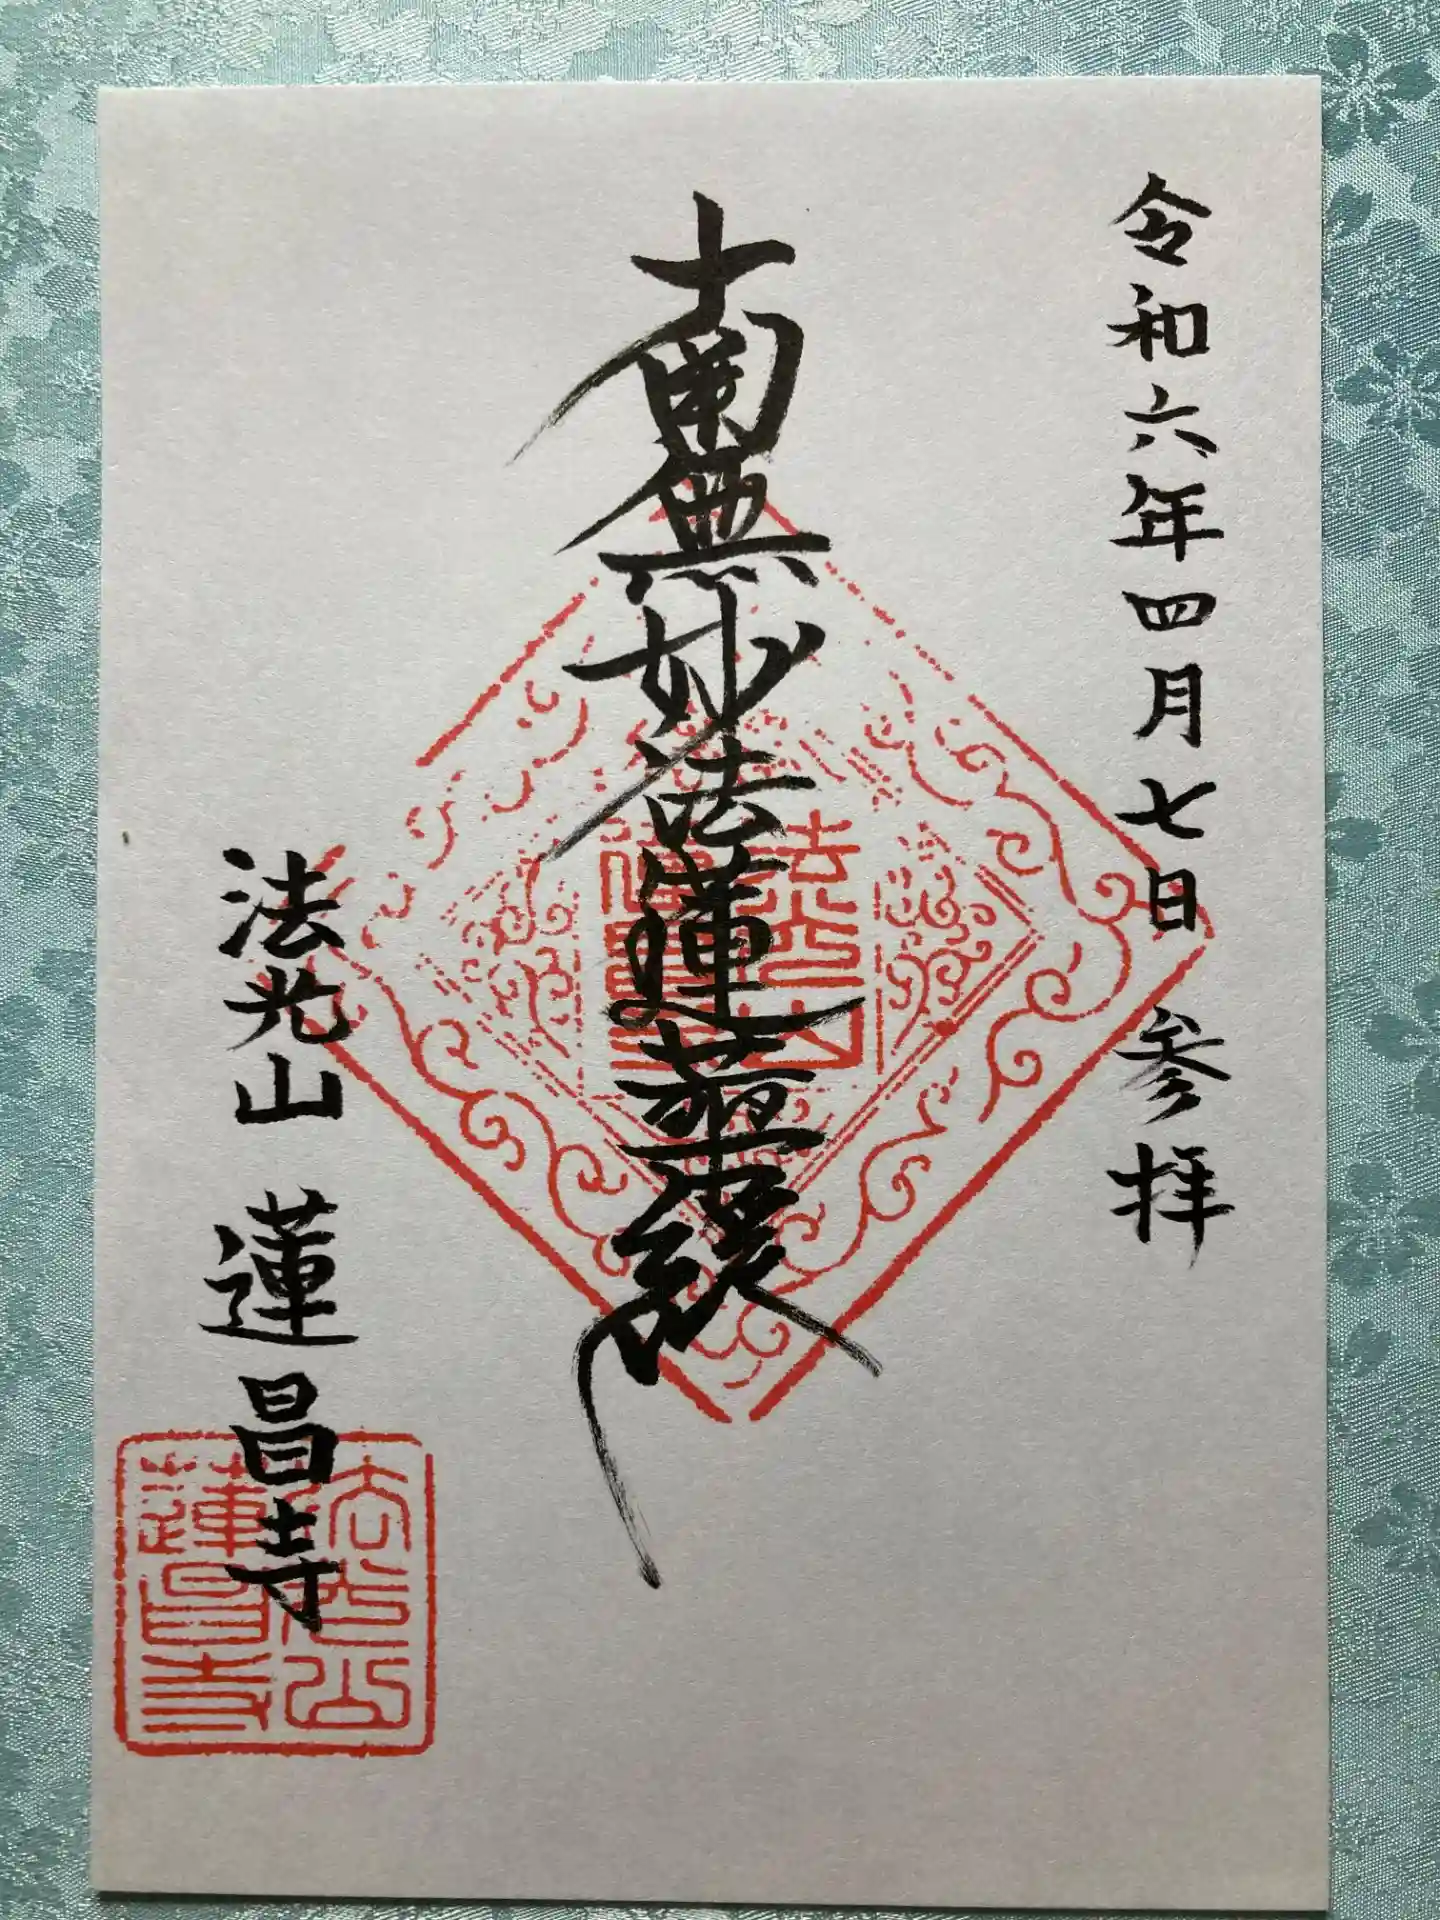 令和六年四月七日 参拝
南無妙法蓮華経
法光山 蓮昌寺
法光山
蓮昌寺
法光山
蓮昌寺